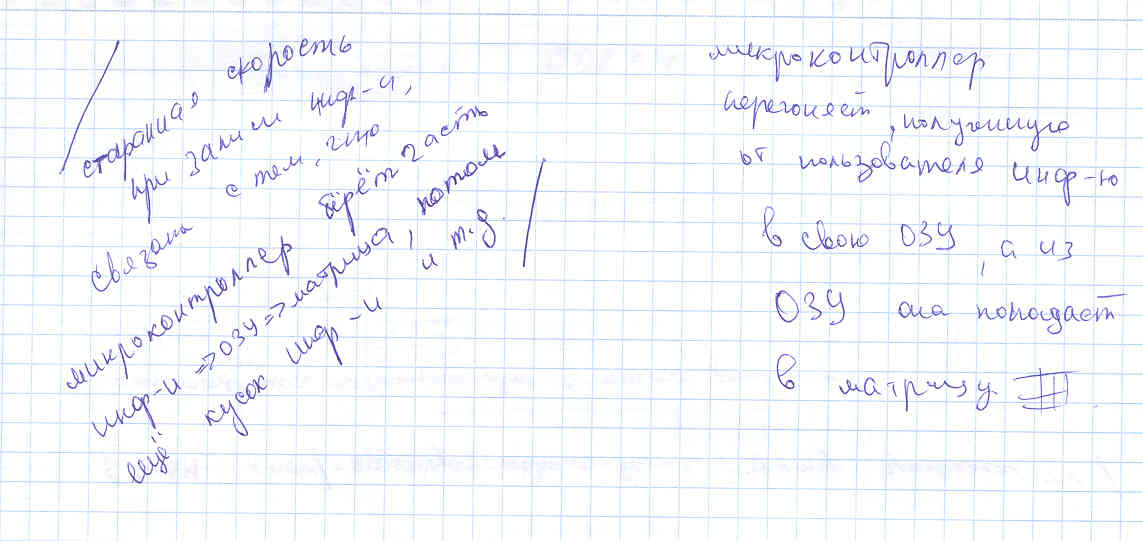 старания скорость
при записи инф-и,
связана с тем, что
микроконтроллер берёт часть
инф-и => ОЗУ => матрица, потом
ещё кусок инф-и и т.д.
микроконтроллер
перегоняет, полученную
от пользователя инф-ю
в свою ОЗУ, а из
ОЗУ она попадает
в матрицу